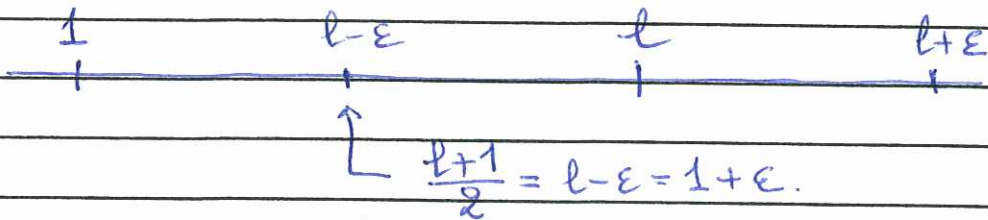 1 ℓ-ε ℓ ℓ+ε
(ℓ+1)/2 = ℓ-ε = 1+ε.